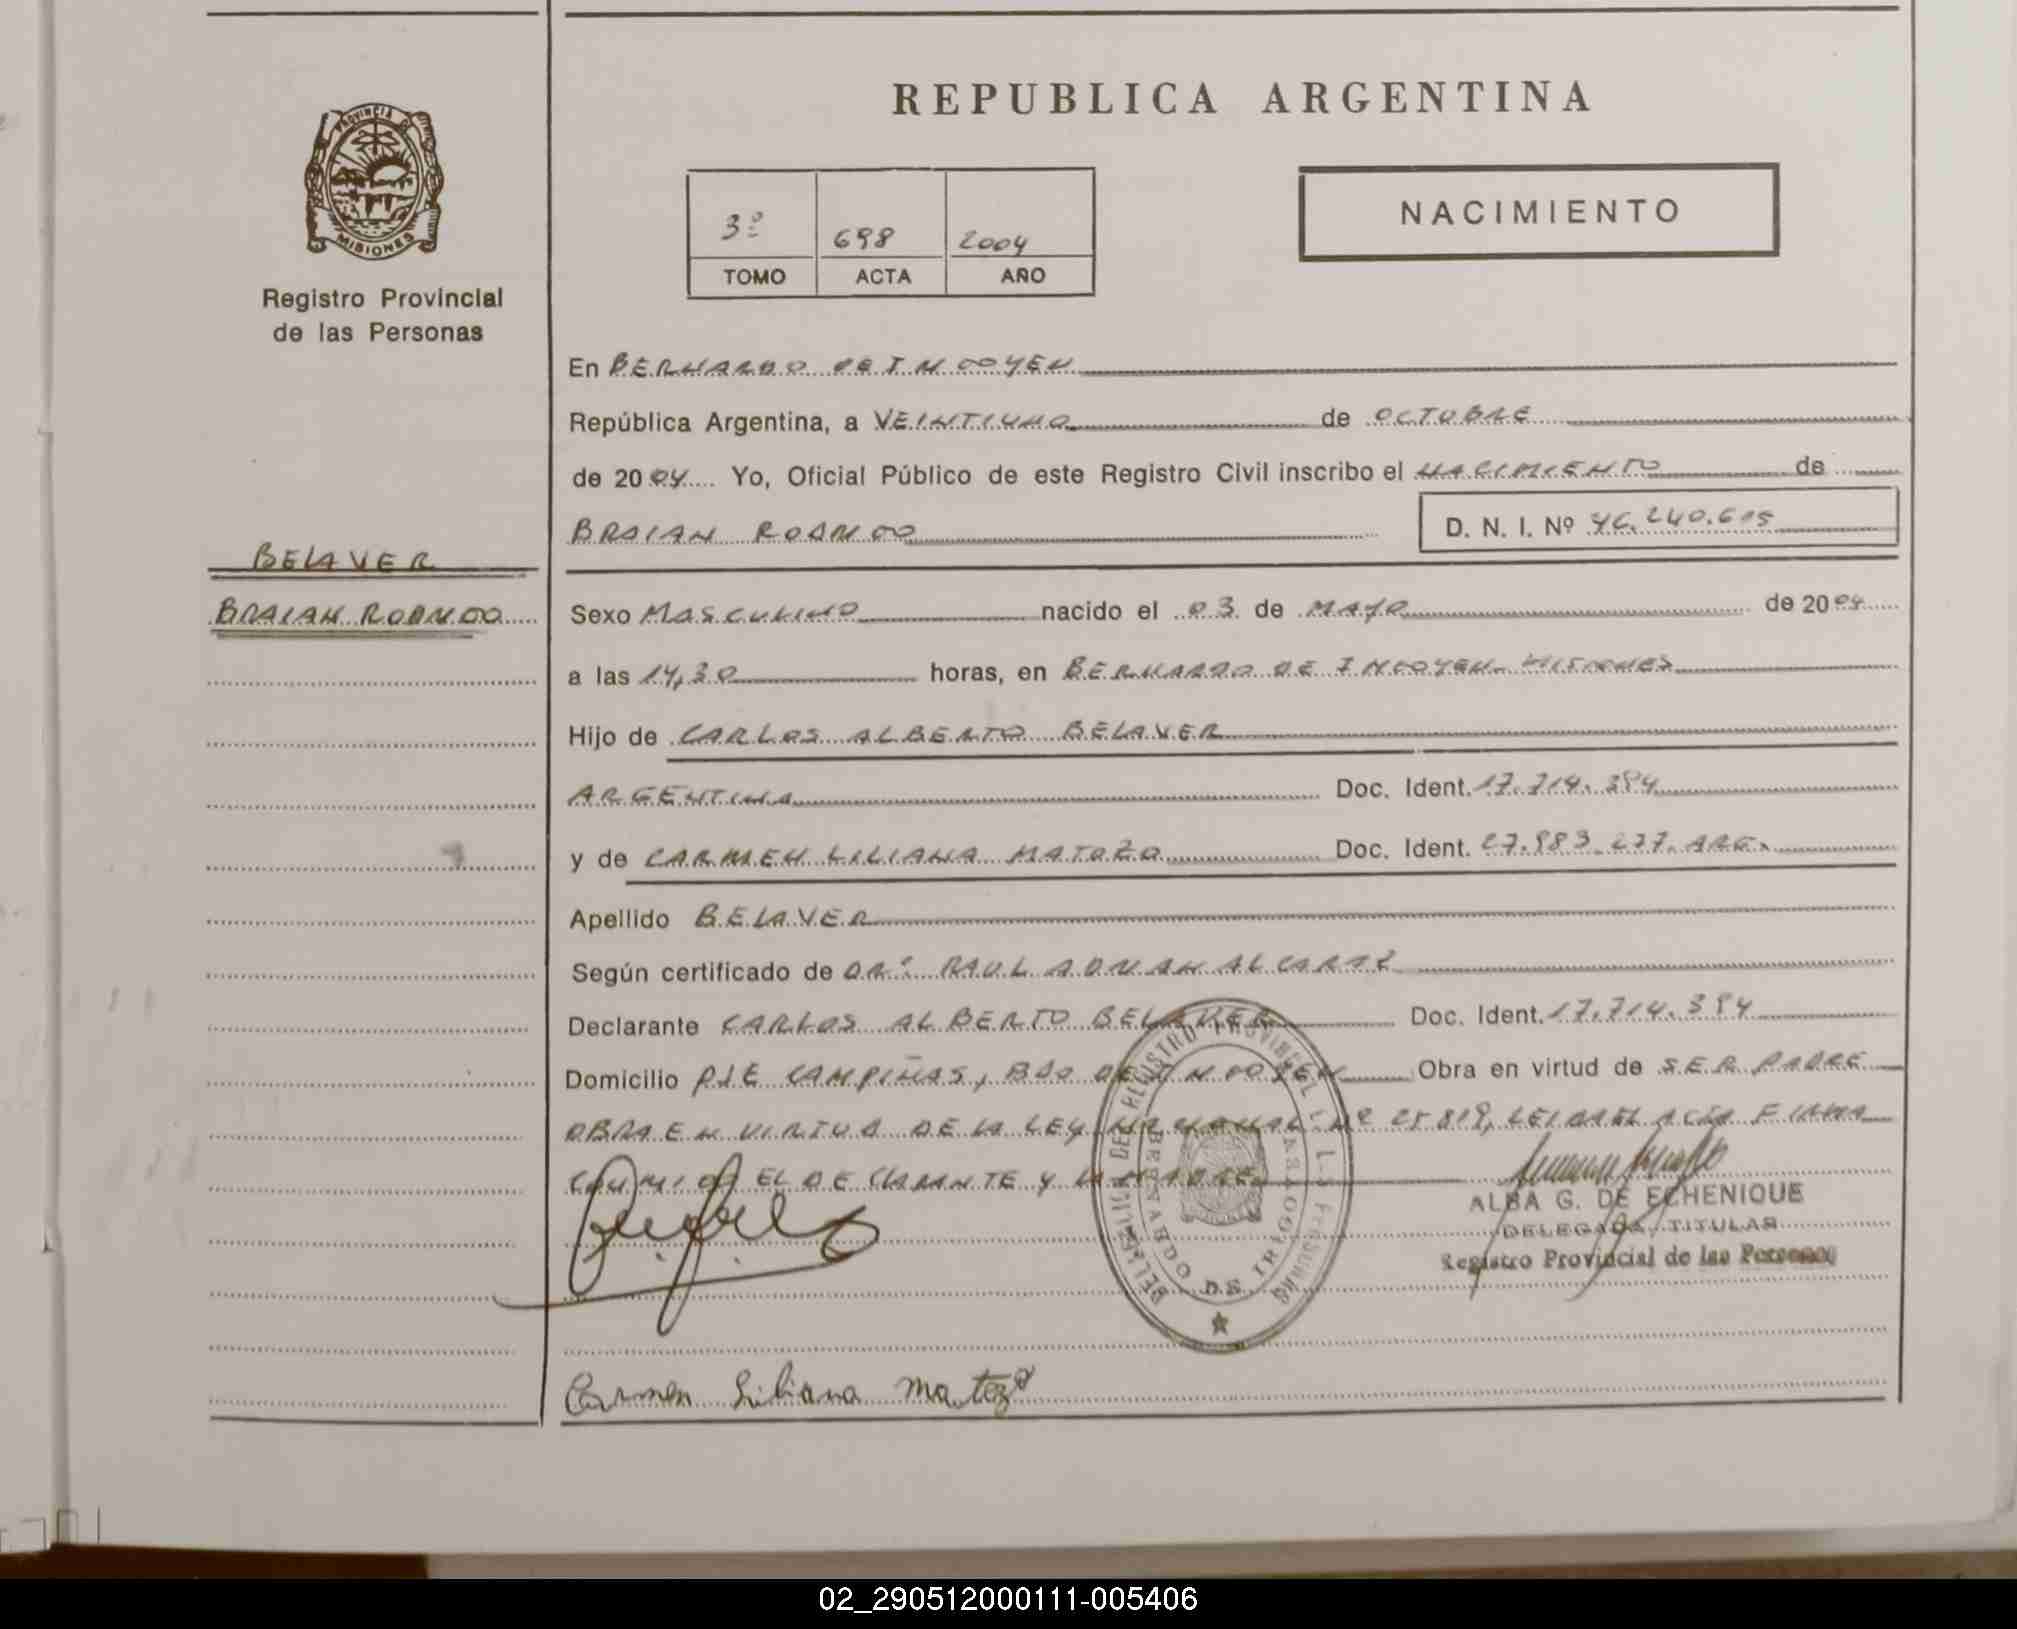 REPUBLICA ARGENTINA
PROVINCIA DE
MISIONES
Registro Provincial
de las Personas
3º 698 2004
TOMO ACTA AÑO
NACIMIENTO
En BERNARDO DE IRIGOYEN
República Argentina, a VEINTIUNO de OCTUBRE
de 2004 Yo, Oficial Público de este Registro Civil inscribo el NACIMIENTO de
BRAIAN D. N. I. Nº 46.240.615
BELAVER
BRAIAN
Sexo MASCULINO nacido el 03 de MAYO de 2004
a las 14,30 horas, en BERNARDO DE IRIGOYEN. MISIONES
Hijo de CARLOS ALBERTO BELAVER
ARGENTINA Doc. Ident. 17.714.384
y de CARMEN LILIANA MATOZO Doc. Ident. 27.983.277. ARG.
Apellido BELAVER
Según certificado de DR. RAUL ADRIAN ALCARAZ
Declarante CARLOS ALBERTO BELAVER Doc. Ident. 17.714.384
Domicilio PJE CAMPIÑAS, BDO DE IRIGOYEN Obra en virtud de SER PADRE
OBRA EN VIRTUD DE LA LEY NACIONAL Nº 25.819, LEIDA EL ACTA FIRMA
CONMIGO EL DECLARANTE Y LA MADRE
ALBA G. DE ECHENIQUE
DELEGADA TITULAR
Registro Provincial de las Personas
Carmen Liliana Matozo
02_290512000111-005406